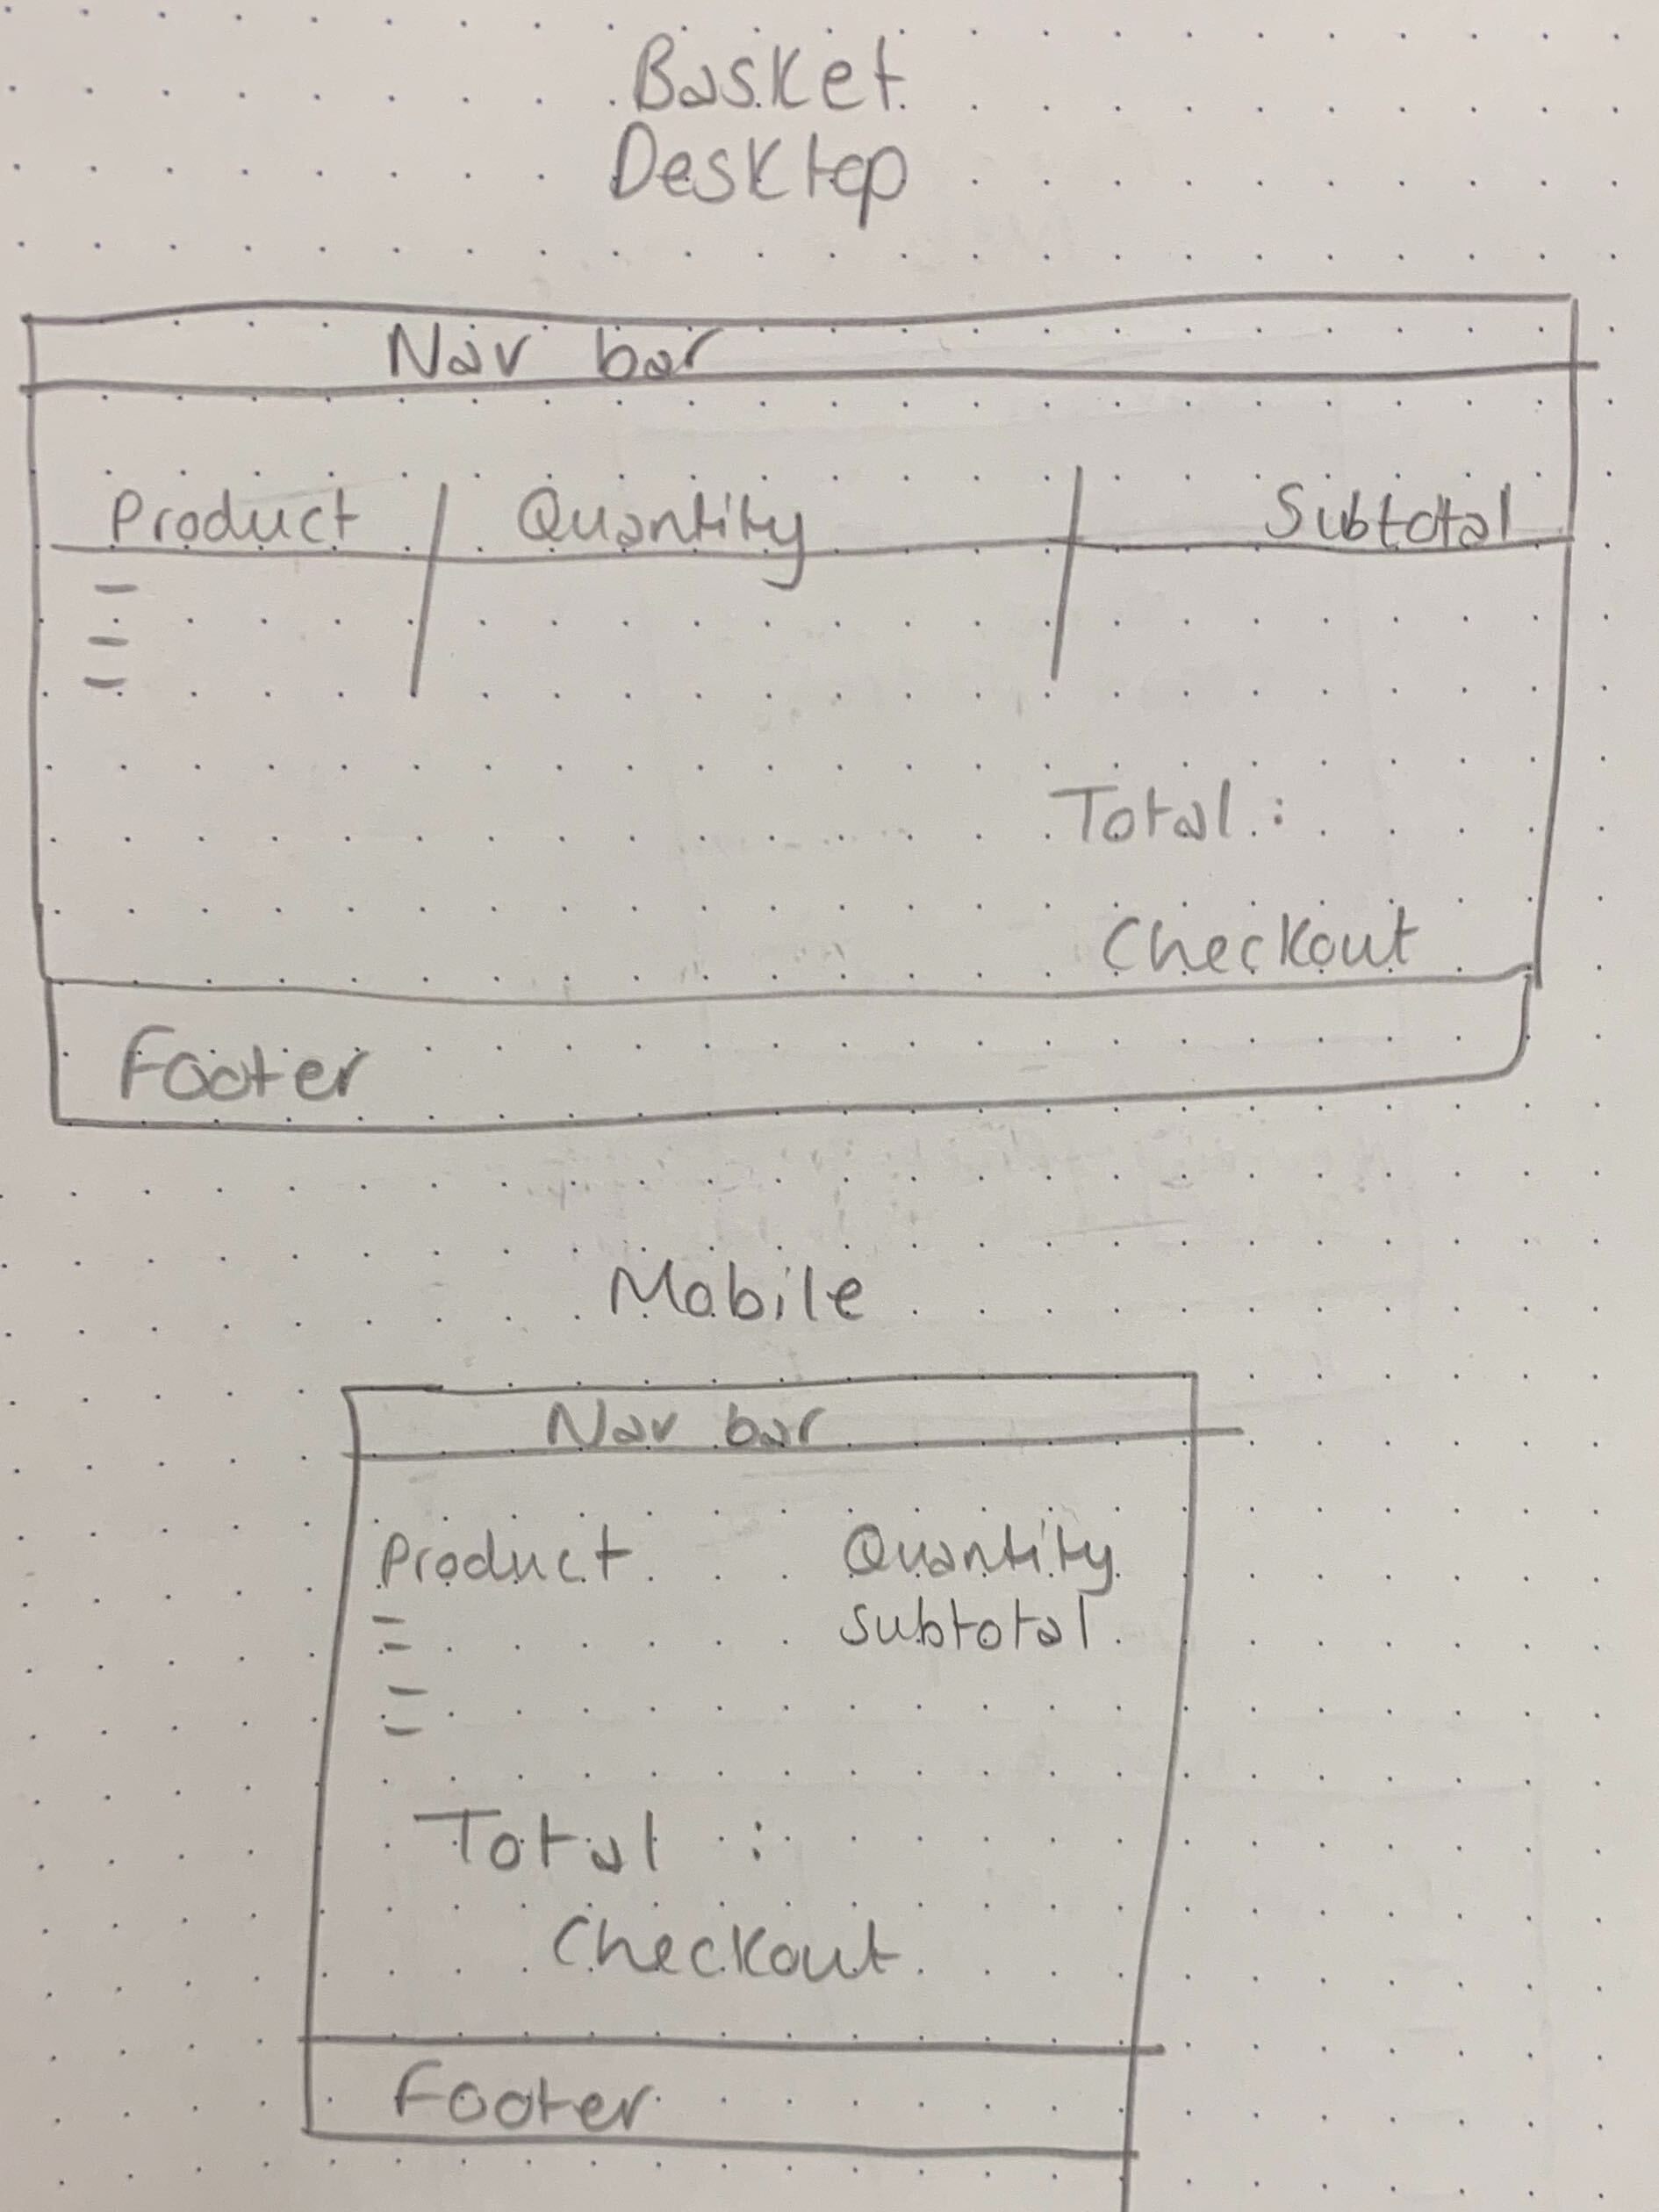 Basket
Desktop
Nav bar
Product Quantity Subtotal
Total :
Checkout
Footer
Mobile
Nav bar
Product Quantity
Subtotal
Total :
Checkout
Footer